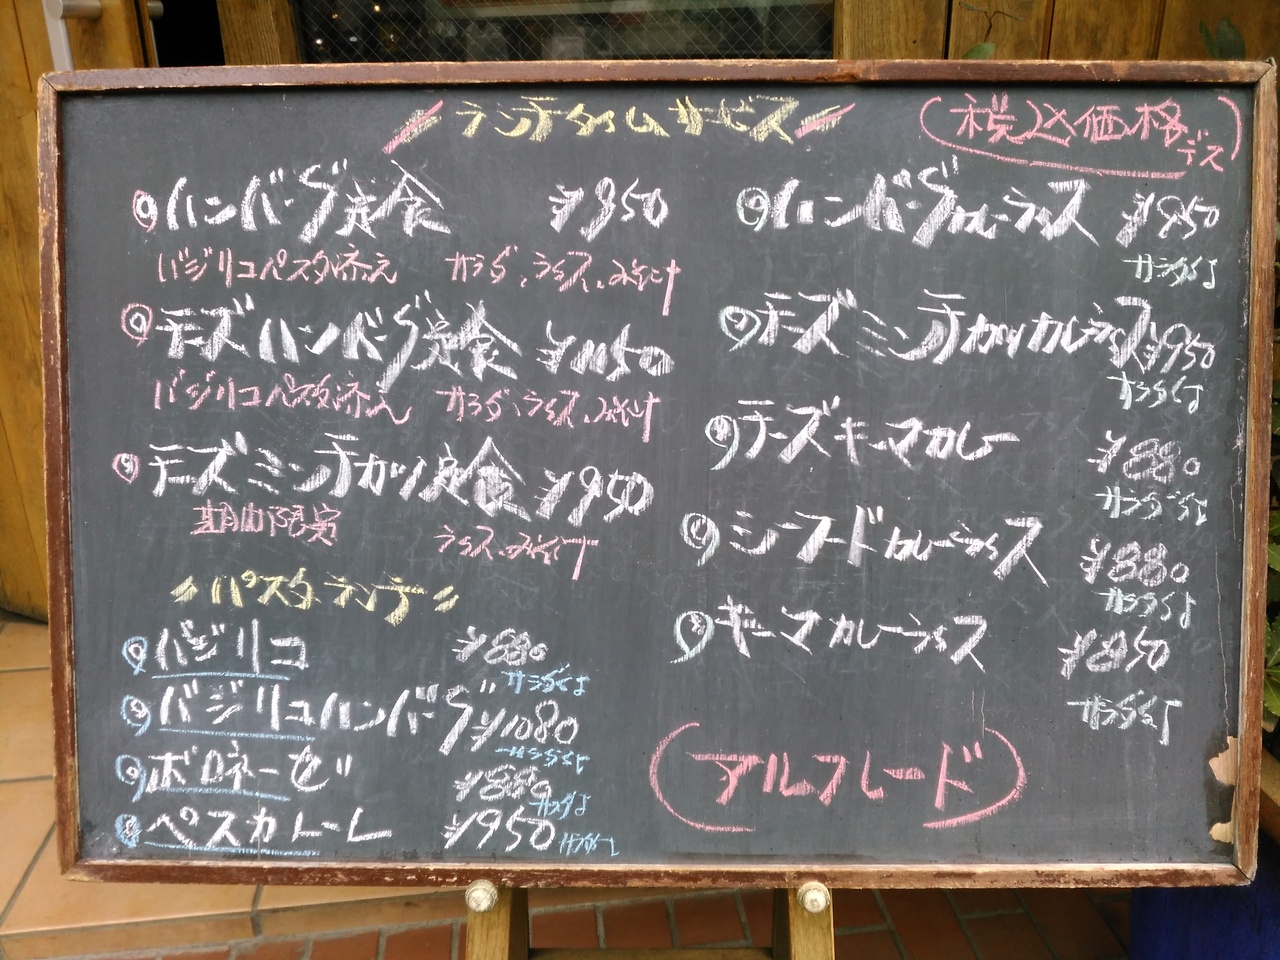 ランチタイムサービス
(税込価格デス)
ハンバーグ定食 ¥950
バジリコパスタ添え サラダ、ライス、みそ汁
チーズハンバーグ定食 ¥1150
バジリコパスタ添え サラダ、ライス、みそ汁
チーズミンチカツ定食 ¥950
期間限定 ライス、みそ汁
パスタランチ
バジリコ ¥880
サラダ付
バジリコハンバーグ ¥1080
サラダ付
ボロネーゼ ¥880
サラダ付
ペスカトーレ ¥950 サラダ付
ハンバーグカレーライス ¥850
サラダ付
チーズミンチカツカレーライス ¥950
サラダ付
チーズキーマカレー ¥880
サラダ付
シーフードカレーライス ¥880
サラダ付
キーマカレーライス ¥850
サラダ付
(アルフレード)